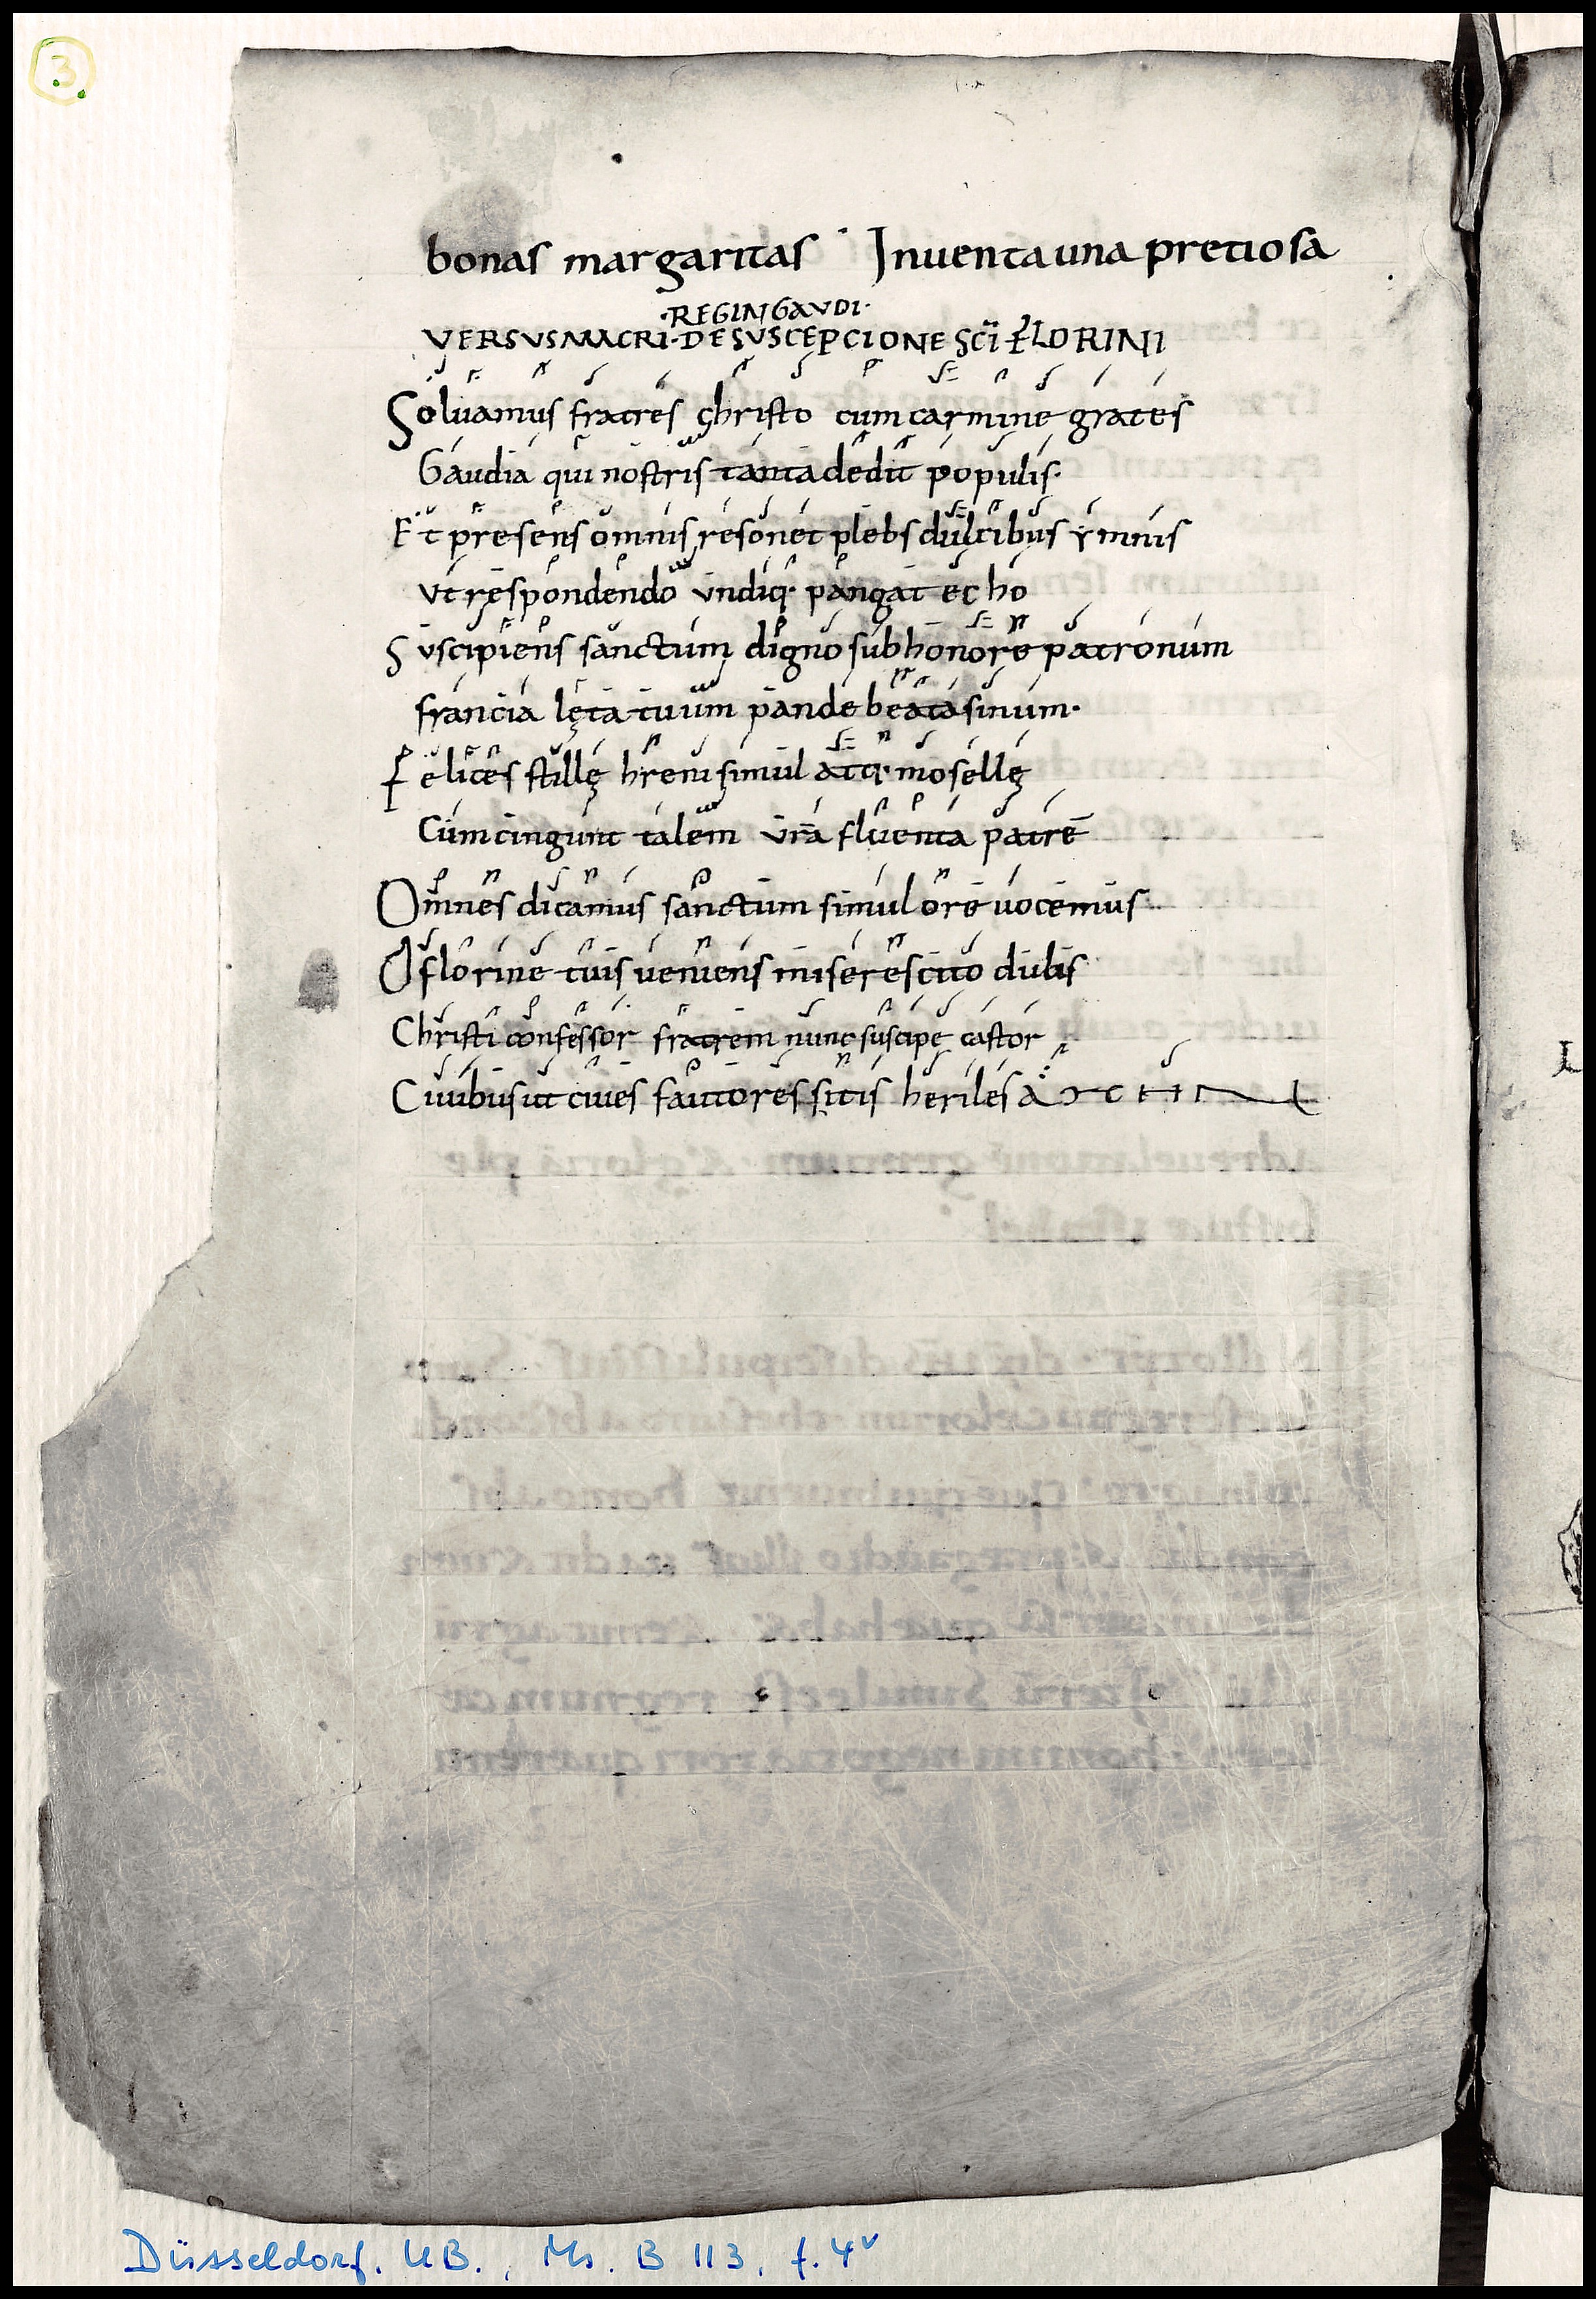 3.
bonas margaritas Inventa una pretiosa
·REGINGAVDI·
VERSUS MACRI·DE SUSCEPCIONE SCI FLORINI
Soluamus fratres christo cum carmine grates
Gaudia qui nostris tanta dedit populis·
Et presens omnis resonet plebs dulcibus ymnis
Vt respondendo undiq· pangat echo
Suscipiens sanctum digno sub honore patronum
francia lęta tuum pande beata sinum·
Felices stillę hreni simul atq· mosellę
Cum cingunt talem vrā fluenta patrē
Omnes dicamus sanctum simul ore uocemus
O florine tuis ueniens miserescito dulis
Christi confessor fratrem nunc suscipe castor
Ciuibus ut ciues fautores sitis heriles
Düsseldorf. UB., Ms. B 113, f. 4v